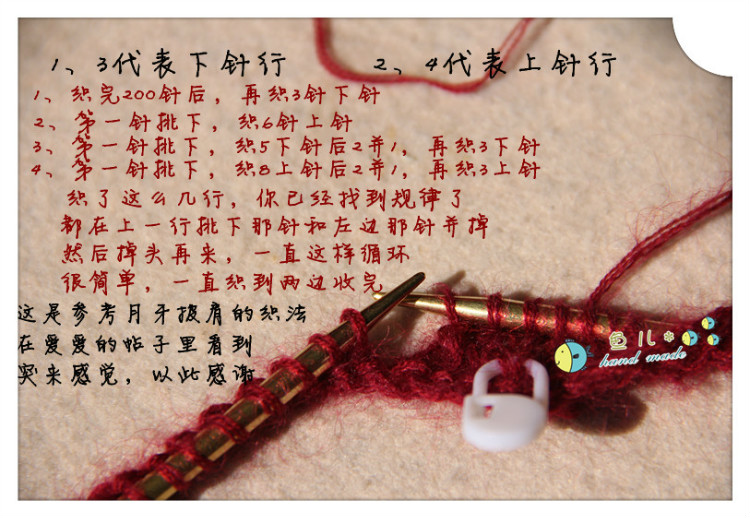 1、3代表下针行    2、4代表上针行
1、织完200针后，再织3针下针
2、第一针挑下，织6针上针
3、第一针挑下，织5下针后2并1，再织3下针
4、第一针挑下，织8上针后2并1，再织3上针
织了这么几行，你已经找到规律了
都在上一行挑下那针和左边那针并掉
然后掉头再来，一直这样循环
很简单，一直织到两边收完
这是参考月牙披肩的织法
在爱爱的帖子里看到
突来感觉，以此感谢
鱼儿*
hand made